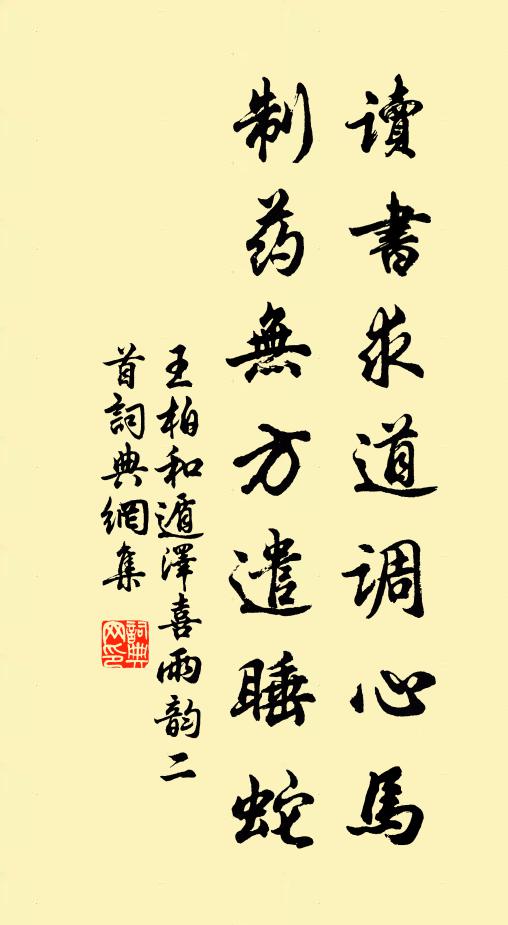 讀書求道调心馬
制药無方遣睡蛇
王柏和遁澤喜雨韵二
首詞典網集
詞典
网印